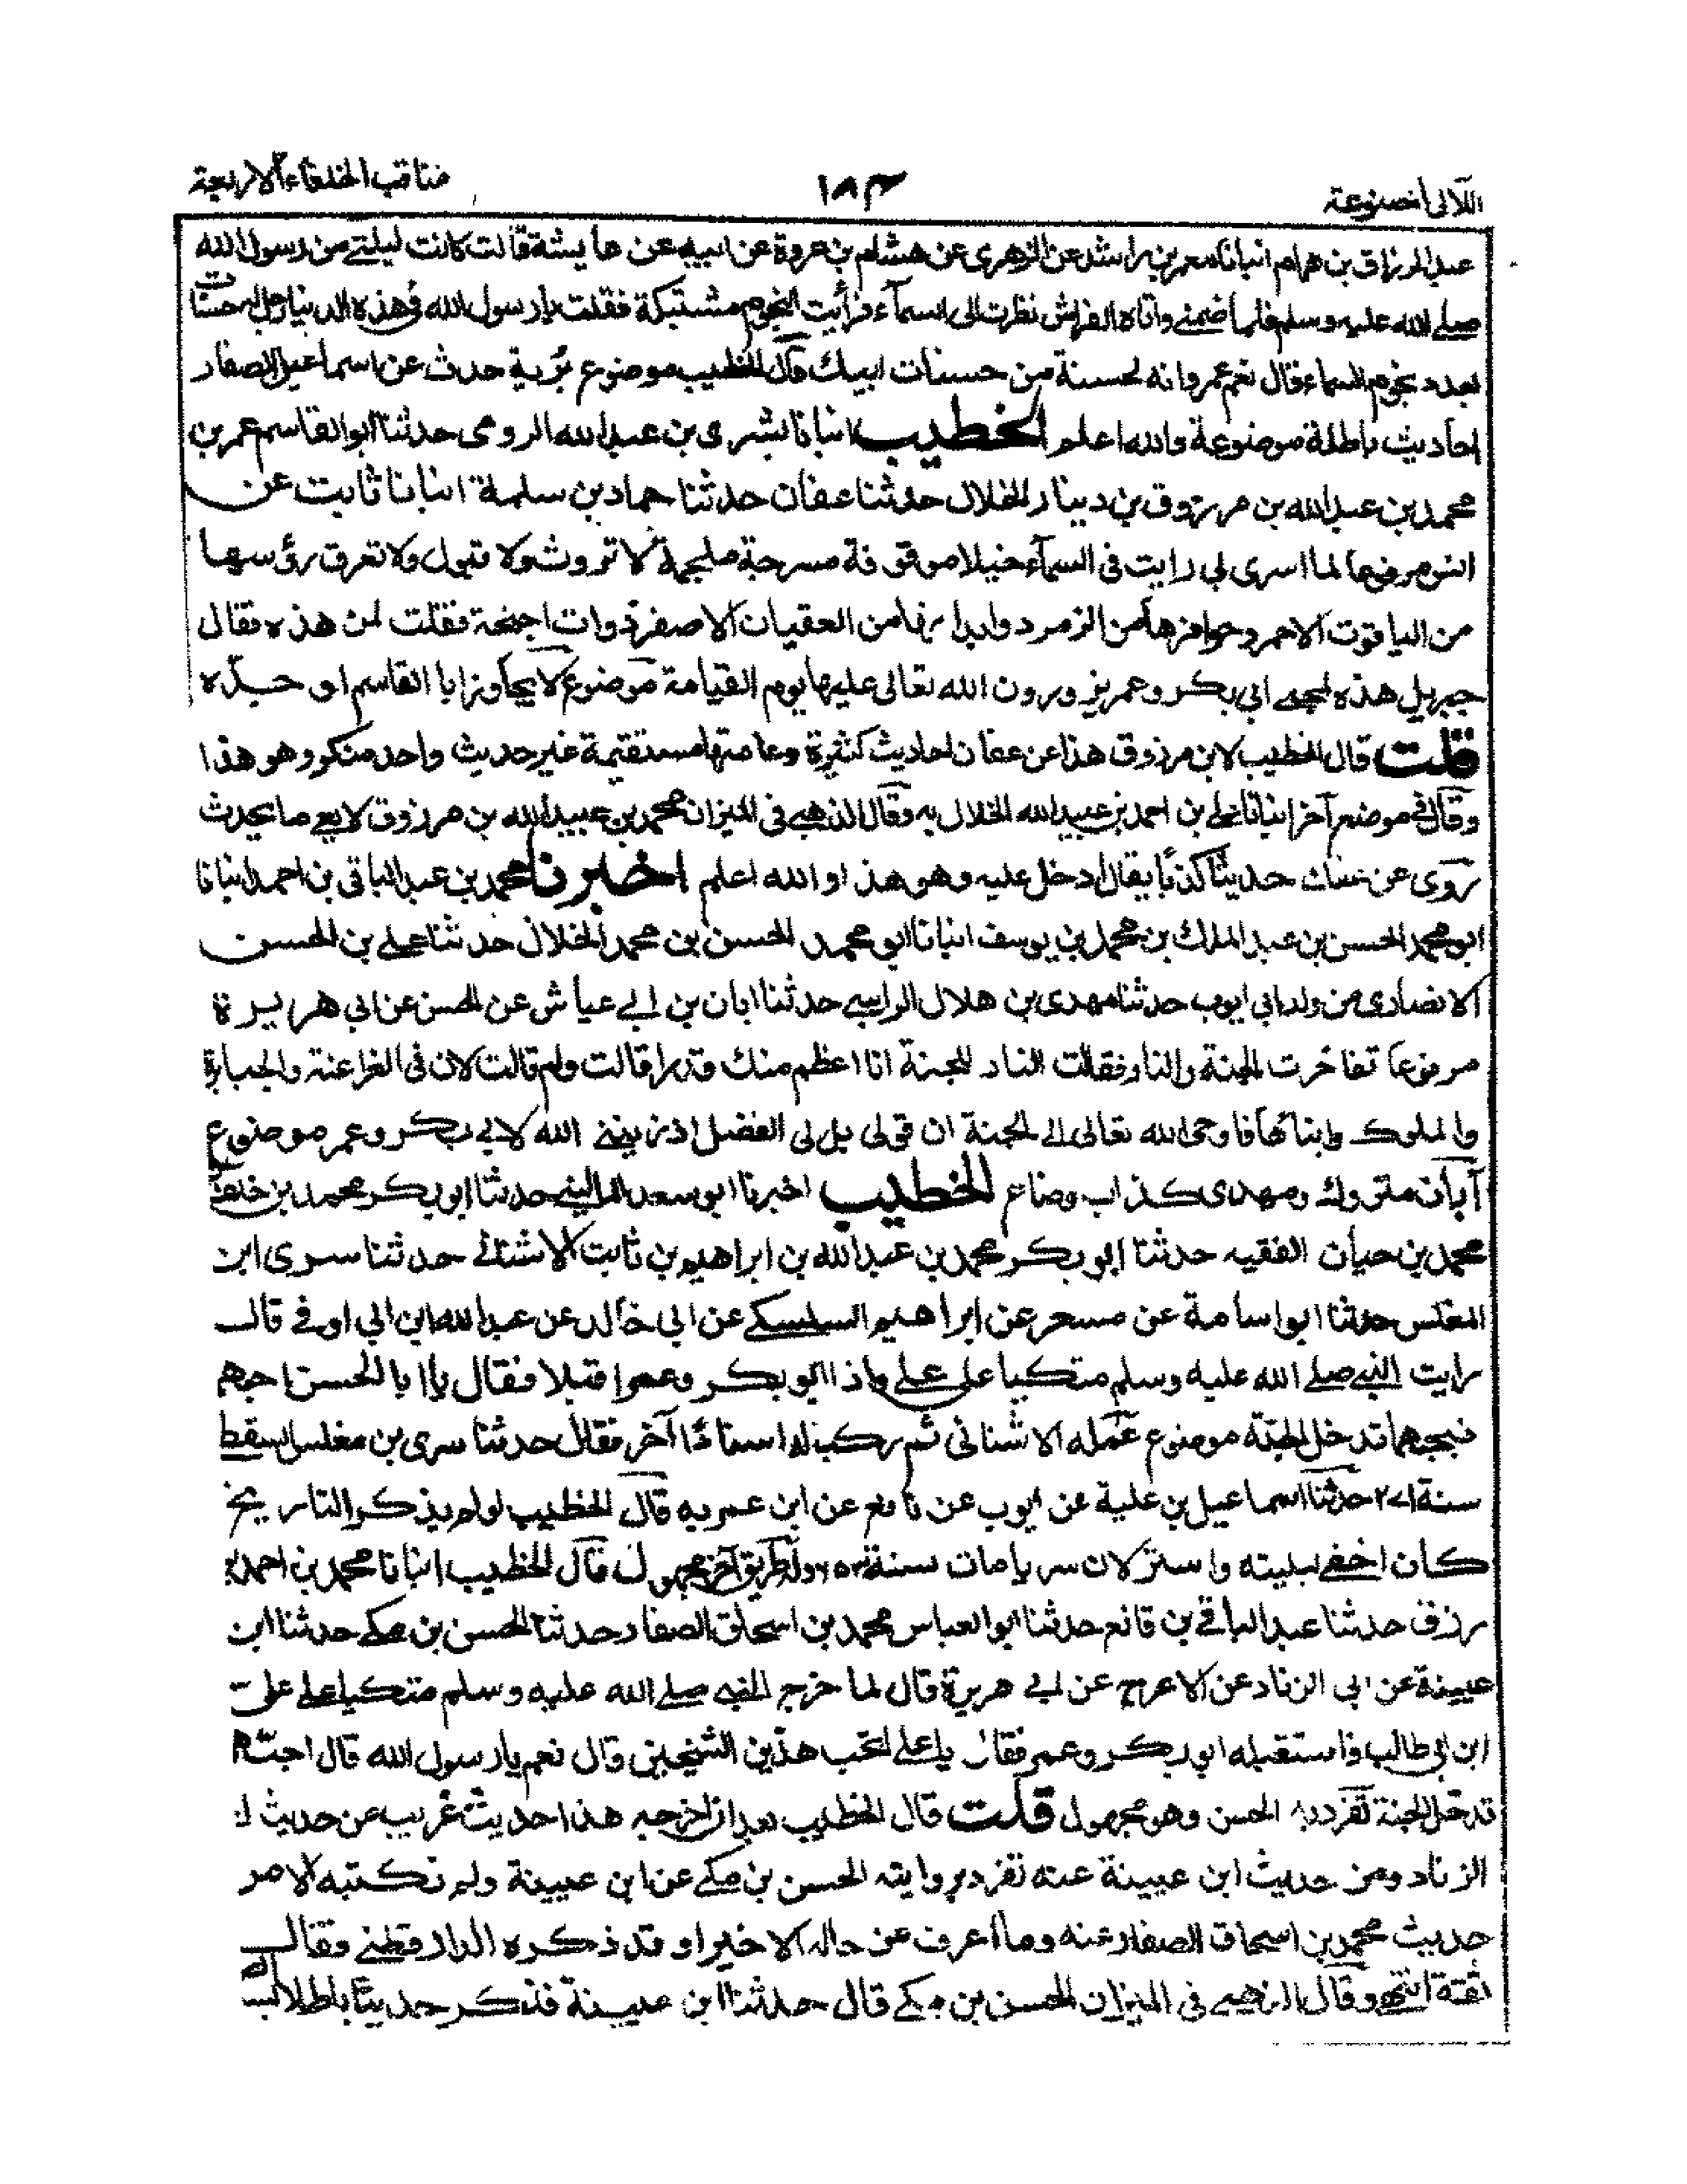 اللآلی المصنوعة
١٨٣
مناقب الخلفاء الاربعة
عبد الرزاق بن همام انبانا معمر بن راشد عن الزهری عن هشام بن عروة عن ابیه عن عایشة قالت کانت لیلتی من رسول الله
صلی الله علیه وسلم فلما ضمنی وایاه الفراش نظرت الی السمآء فرأیت النجوم مشتبکة فقلت یا رسول الله فی هذه الدنیا رجل له حسنات
بعدد نجوم السماء قال نعم عمر وانه لحسنة من حسنات ابیک قال الخطیب موضوع بُریه حدث عن اسماعیل الصفار
احادیث باطلة موضوعة والله اعلم الخطیب انبانا بشری بن عبد الله الرومی حدثنا ابو القاسم عمر بن
محمد بن عبد الله بن مرزوق بن دینار الخلال حدثنا عفان حدثنا حماد بن سلمة انبانا ثابت عن
انس مرفوعا لما اسری بی رایت فی السمآء خیلا موقوفة مسرجة ملجمة لا تروث ولا تبول ولا تعرق رؤسها
من الیاقوت الاحمر وحوافرها من الزمرد وابدانها من العقیان الاصفر ذوات اجنحة فقلت لمن هذه فقال
جبریل هذه لمحبی ابی بکر وعمر یزورون الله تعالی علیها یوم القیامة موضوع لا یجاوز ابا القاسم او جده
قلت قال الخطیب لابن مرزوق هذا عن عفان احادیث کثیرة وعامتها مستقیمة غیر حدیث واحد منکر وهو هذا
وقال فی موضع آخر انبانا علی بن احمد بن عبید الله الخلال به وقال الذهبی فی المیزان محمد بن عبید الله بن مرزوق لا یعی ما یحدث
روی عن عفان حدیثا کذبا یقال ادخل علیه وهو هذا والله اعلم اخبرنا محمد بن عبد الباقی بن احمد انبانا
ابو محمد الحسن بن عبد الملک بن محمد بن یوسف انبانا ابو محمد الحسن بن محمد الخلال حدثنا علی بن الحسن
الانصاری من ولد ابی ایوب حدثنا مهدی بن هلال الراسبی حدثنا ابان بن ابی عیاش عن الحسن عن ابی هریرة
مرفوعا تفاخرت الجنة والنار فقالت النار للجنة انا اعظم منک قدرا قالت ولم قالت لان فیّ الفراعنة والجبابرة
والملوک وابناءها فاوحی الله تعالی الی الجنة ان قولی بل لی الفضل اذ زیننی الله لابی بکر وعمر موضوع
آبان متروک ومهدی کذاب وضاع الخطیب اخبرنا ابو سعد المالینی حدثنا ابو بکر محمد بن خلف
محمد بن حیان الفقیه حدثنا ابو بکر محمد بن عبد الله بن ابراهیم بن ثابت الاشنانی حدثنا سری ابن
المغلس حدثنا ابو اسامة عن مسعر عن ابراهیم السکسکی عن ابی خالد عن عبد الله ابن ابی اوفی قال
رایت النبی صلی الله علیه وسلم متکیا علی علی واذا ابو بکر وعمر اقبلا فقال یا ابا الحسن احبهم
فبحبهما تدخل الجنة موضوع عمله الاشنانی ثم رکب له اسنادا آخر فقال حدثنا سری بن مغلس السقطی
سنة ٢٧١ حدثنا اسماعیل بن علیة عن ایوب عن نافع عن ابن عمر به قال الخطیب لو لم یذکر التاریخ
کان اخفی لبلیته واستر لان سریا مات سنة ٢٥٣ وله طریق آخر مجهول قال الخطیب انبانا محمد بن احمد بن
رزق حدثنا عبد الباقی بن قانع حدثنا ابو العباس محمد بن اسحاق الصفار حدثنا الحسن بن مکی حدثنا ابن
عیینة عن ابی الزناد عن الاعرج عن ابی هریرة قال لما خرج النبی صلی الله علیه وسلم متکیا علی علی
ابن ابی طالب فاستقبله ابو بکر وعمر فقال یا علی اتحب هذین الشیخین قال نعم یا رسول الله قال احبهم
تدخل الجنة تفرد به الحسن وهو مجهول قلت قال الخطیب بعد ان اخرجه هذا حدیث غریب من حدیث ابی
الزناد ومن حدیث ابن عیینة عنه تفرد بروایته الحسن بن مکی عن ابن عیینة ولم نکتبه الا من
حدیث محمد بن اسحاق الصفار عنه وما اعرف من حاله الا خیرا وقد ذکره الدارقطنی وقال
ثقة انتهی وقال الذهبی فی المیزان الحسن بن مکی قال حدثنا ابن عیینة فذکر حدیثا باطلا